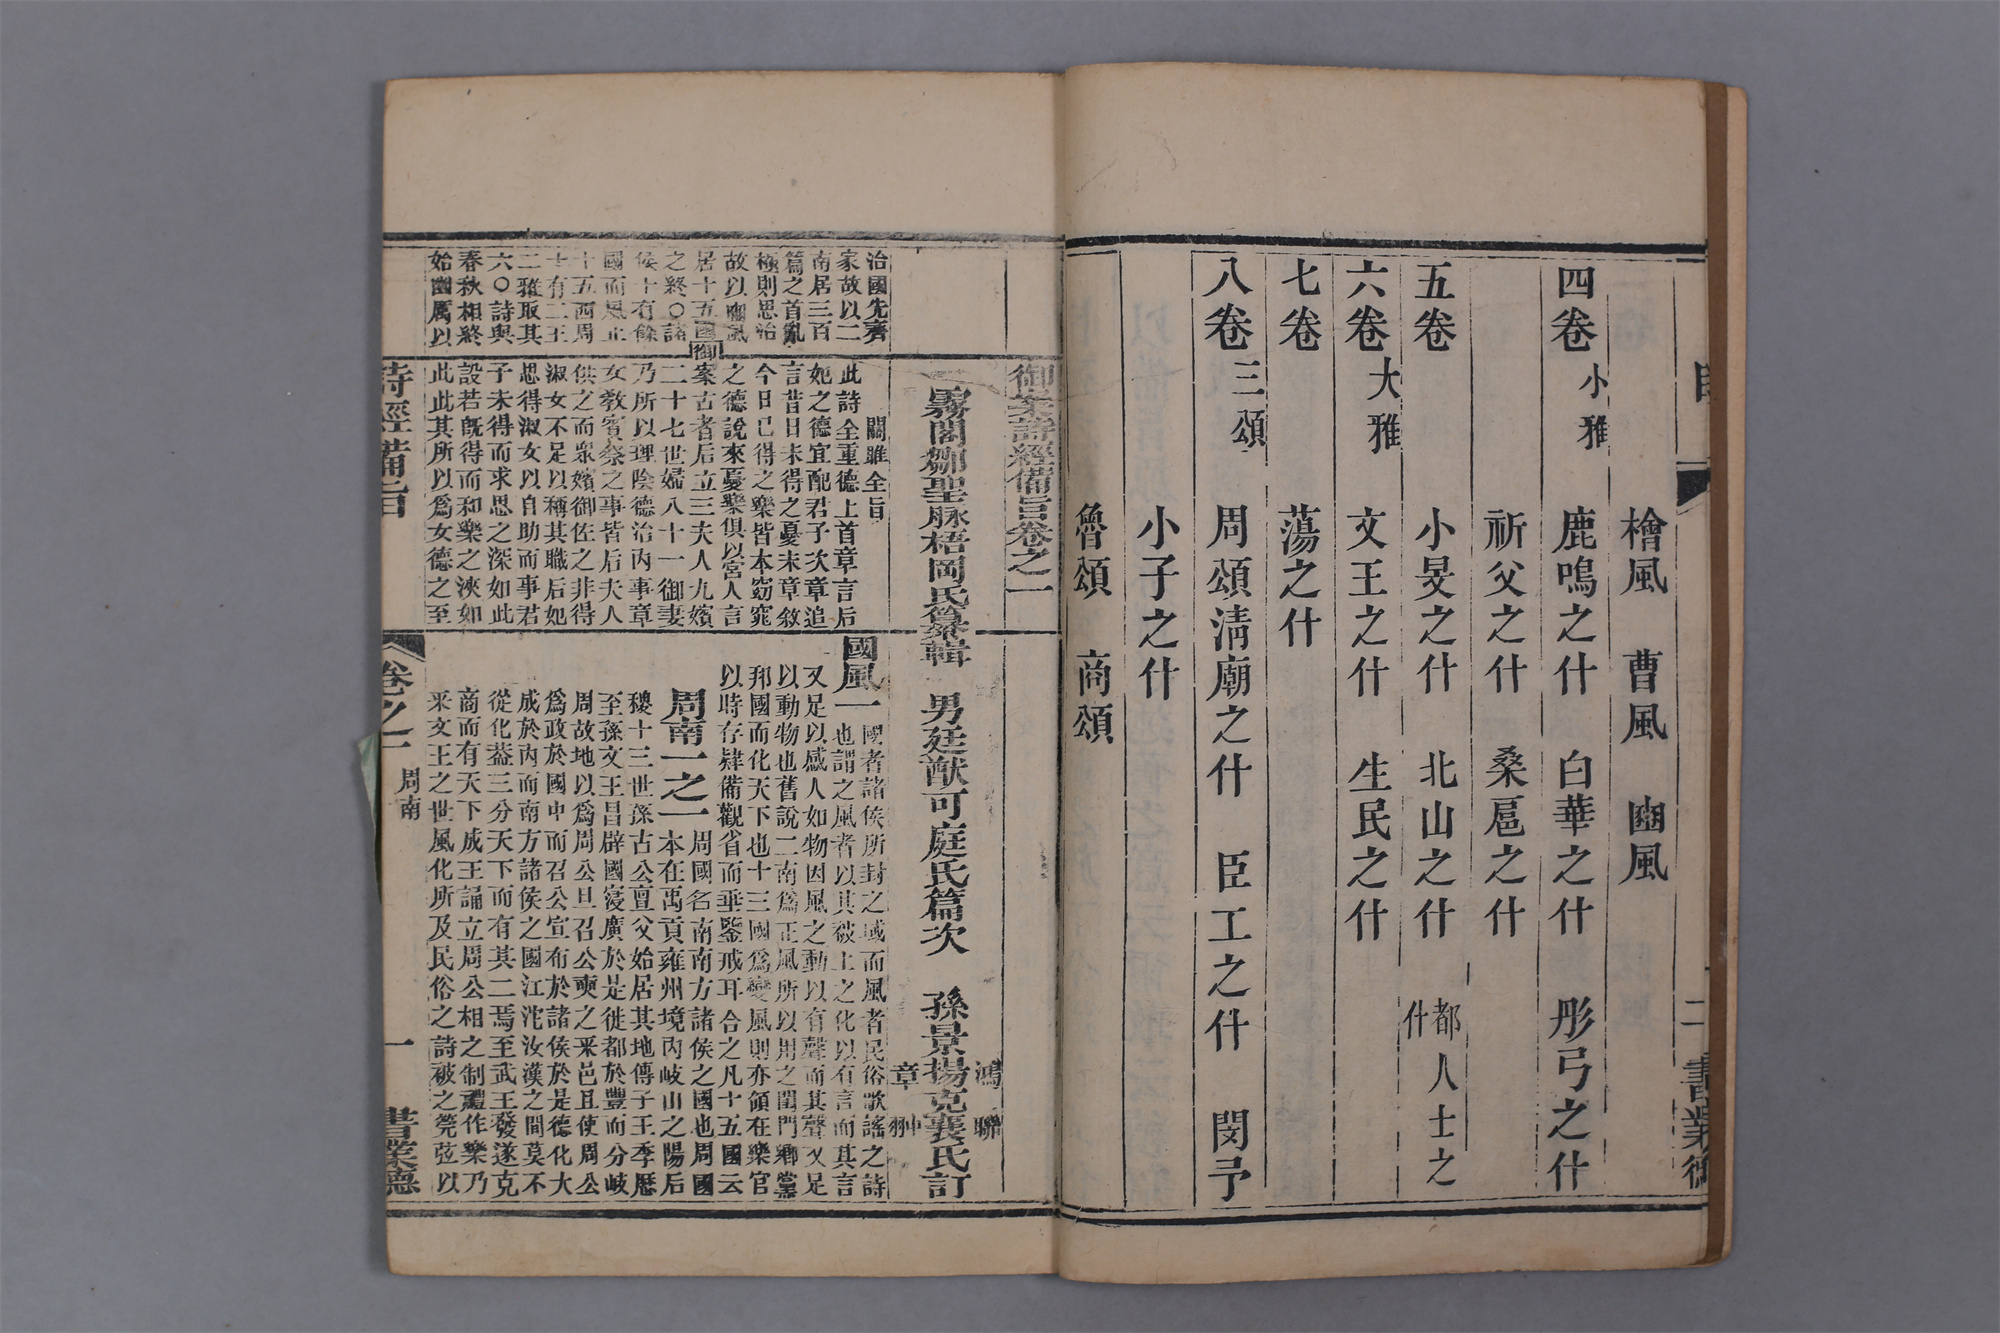 檜風　曹風　豳風
四卷　小雅　鹿鳴之什　白華之什　彤弓之什
祈父之什　桑扈之什
五卷　小旻之什　北山之什　都人士之什
六卷　大雅　文王之什　生民之什
七卷　蕩之什
八卷　三頌　周頌清廟之什　臣工之什　閔予
小子之什
魯頌　商頌
二
御案詩經備旨卷之一
霧閣鄒聖脉梧岡氏纂輯　男廷猷可庭氏篇次　孫景揚克襄氏訂
鴻聯
章翀
治國先齊
家故以二
南居三百
篇之首亂
極則思治
故以豳風
居十五國
之終○諸
侯十有餘
國而風止
十五西周
十有二王
二雅取其
六○詩與
春秋相終
始幽厲以
關雎全旨
此詩全重德上首章言后
妃之德宜配君子次章追
言昔日未得之憂末章敘
今日已得之樂皆本窈窕
之德說來憂樂俱以宮人言
御案古者后立三夫人九嬪
二十七世婦八十一御妻
乃所以理陰德治內事章
女敎賓祭之事皆后夫人
供之而衆嬪御佐之非得
淑女不足以稱其職后妃
思得淑女以自助而事君
子未得而求思之深如此
設若旣得而和樂之浹如
此此其所以爲女德之至
國風一　國者諸侯所封之域而風者民俗歌謠之詩
也謂之風者以其被上之化以有言而其言
又足以感人如物因風之動以有聲而其聲又足
以動物也舊說二南爲正風所以用之閨門鄉黨
邦國而化天下也十三國爲變風則亦領在樂官
以時存肄備觀省而垂鑒戒耳合之凡十五國云
周南一之一　周國名南南方諸侯之國也周國
本在禹貢雍州境內岐山之陽后
稷十三世孫古公亶父始居其地傳子王季歷
至孫文王昌辟國寖廣於是徙都於豐而分岐
周故地以爲周公旦召公奭之采邑且使周公
爲政於國中而召公宣布於諸侯於是德化大
成於內而南方諸侯之國江沱汝漢之間莫不
從化葢三分天下而有其二焉至武王發遂克
商而有天下成王誦立周公相之制禮作樂乃
采文王之世風化所及民俗之詩被之筦弦以
詩經備旨　卷之一　周南　一　書業德